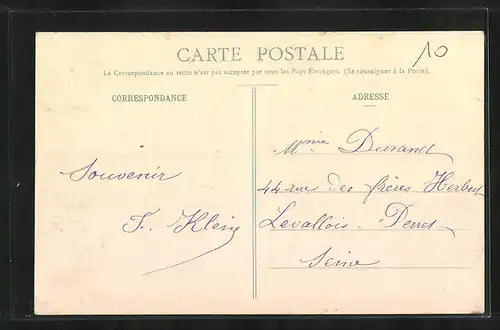 CARTE POSTALE
10
La Correspondance au recto n'est pas acceptée par tous les Pays Étrangers. (Se renseigner à la Poste).
CORRESPONDANCE
ADRESSE
Mme Durand
Souvenir
44 rue des frères Herbert
F. Klein
Levallois-Perret
Seine